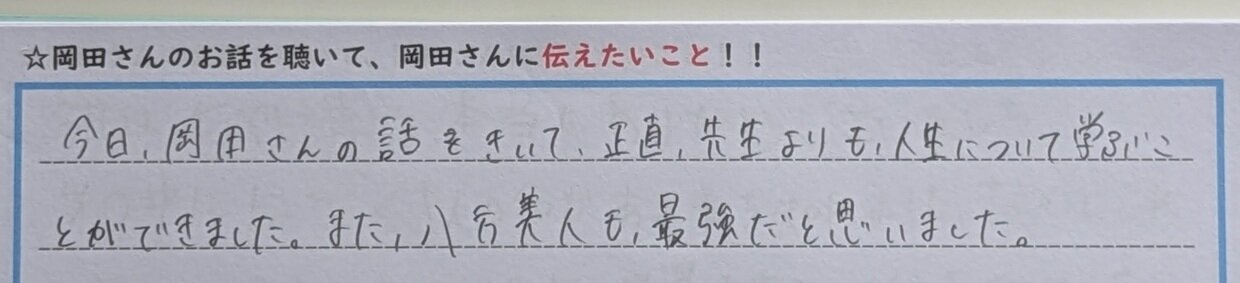 ☆岡田さんのお話を聴いて、岡田さんに伝えたいこと！！
今日、岡田さんの話をきいて、正直、先生よりも、人生について学ぶこ
とができました。また、八方美人も、最強だと思いました。